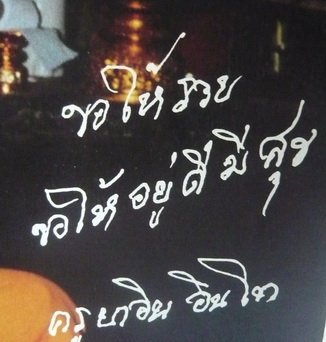 ขอให้รวย
ขอให้อยู่ดีมีสุข
ครูบาอินอินโท